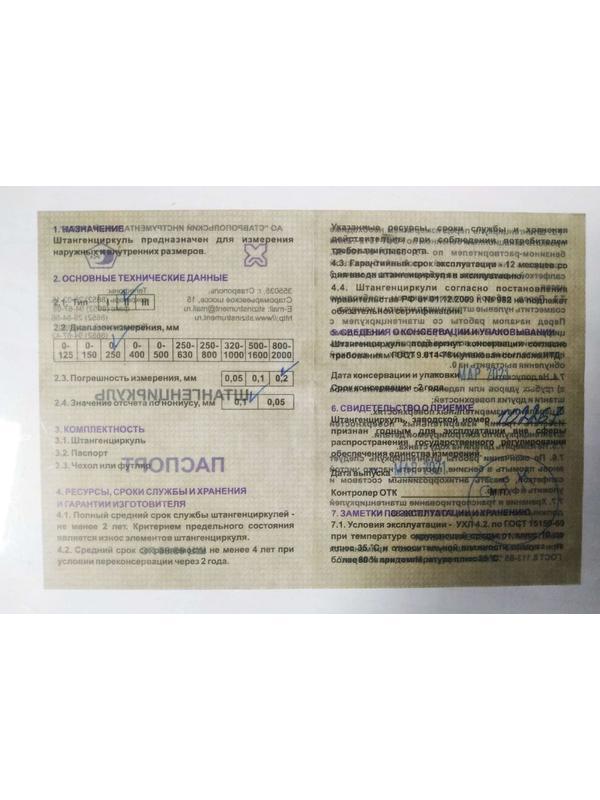 1. НАЗНАЧЕНИЕ
Штангенциркуль предназначен для измерения
наружных и внутренних размеров.
2. ОСНОВНЫЕ ТЕХНИЧЕСКИЕ ДАННЫЕ
2.1. Тип I II III
2.2. Диапазон измерения, мм
0-125 0-150 0-250 0-400 0-500 250-630 250-800 320-1000 500-1600 800-2000
2.3. Погрешность измерения, мм 0,05 0,1 0,2
2.4. Значение отсчета по нониусу, мм 0,1 0,05
3. КОМПЛЕКТНОСТЬ
3.1. Штангенциркуль
3.2. Паспорт
3.3. Чехол или футляр
4. РЕСУРСЫ, СРОКИ СЛУЖБЫ И ХРАНЕНИЯ
И ГАРАНТИИ ИЗГОТОВИТЕЛЯ
4.1. Полный средний срок службы штангенциркулей -
не менее 2 лет. Критерием предельного состояния
является износ элементов штангенциркуля.
4.2. Средний срок сохраняемости не менее 4 лет при
условии переконсервации через 2 года.
Указанные ресурсы, сроки службы и хранения
действительны при соблюдении потребителем
требований паспорта.
4.3. Гарантийный срок эксплуатации - 12 месяцев со
дня ввода штангенциркуля в эксплуатацию.
4.4. Штангенциркули согласно постановления
правительства РФ от 01.12.2009 г. № 982 не подлежат
обязательной сертификации.
5. СВЕДЕНИЯ О КОНСЕРВАЦИИ И УПАКОВЫВАНИИ
Штангенциркуль подвергнут консервации согласно
требованиям ГОСТ 9.014-78 и упакован согласно НТД.
Дата консервации и упаковки МАР 2021
Срок консервации - 2 года.
6. СВИДЕТЕЛЬСТВО О ПРИЕМКЕ
Штангенциркуль, заводской номер
признан годным для эксплуатации вне сферы
распространения государственного регулирования
обеспечения единства измерений.
Дата выпуска МАР 2021
Контролер ОТК М.П.
7. ЗАМЕТКИ ПО ЭКСПЛУАТАЦИИ И ХРАНЕНИЮ
7.1. Условия эксплуатации - УХЛ 4.2. по ГОСТ 15150-69
при температуре окружающей среды от плюс 10 до
плюс 35 °С и относительной влажности воздуха не
более 80% при температуре плюс 25 °С.